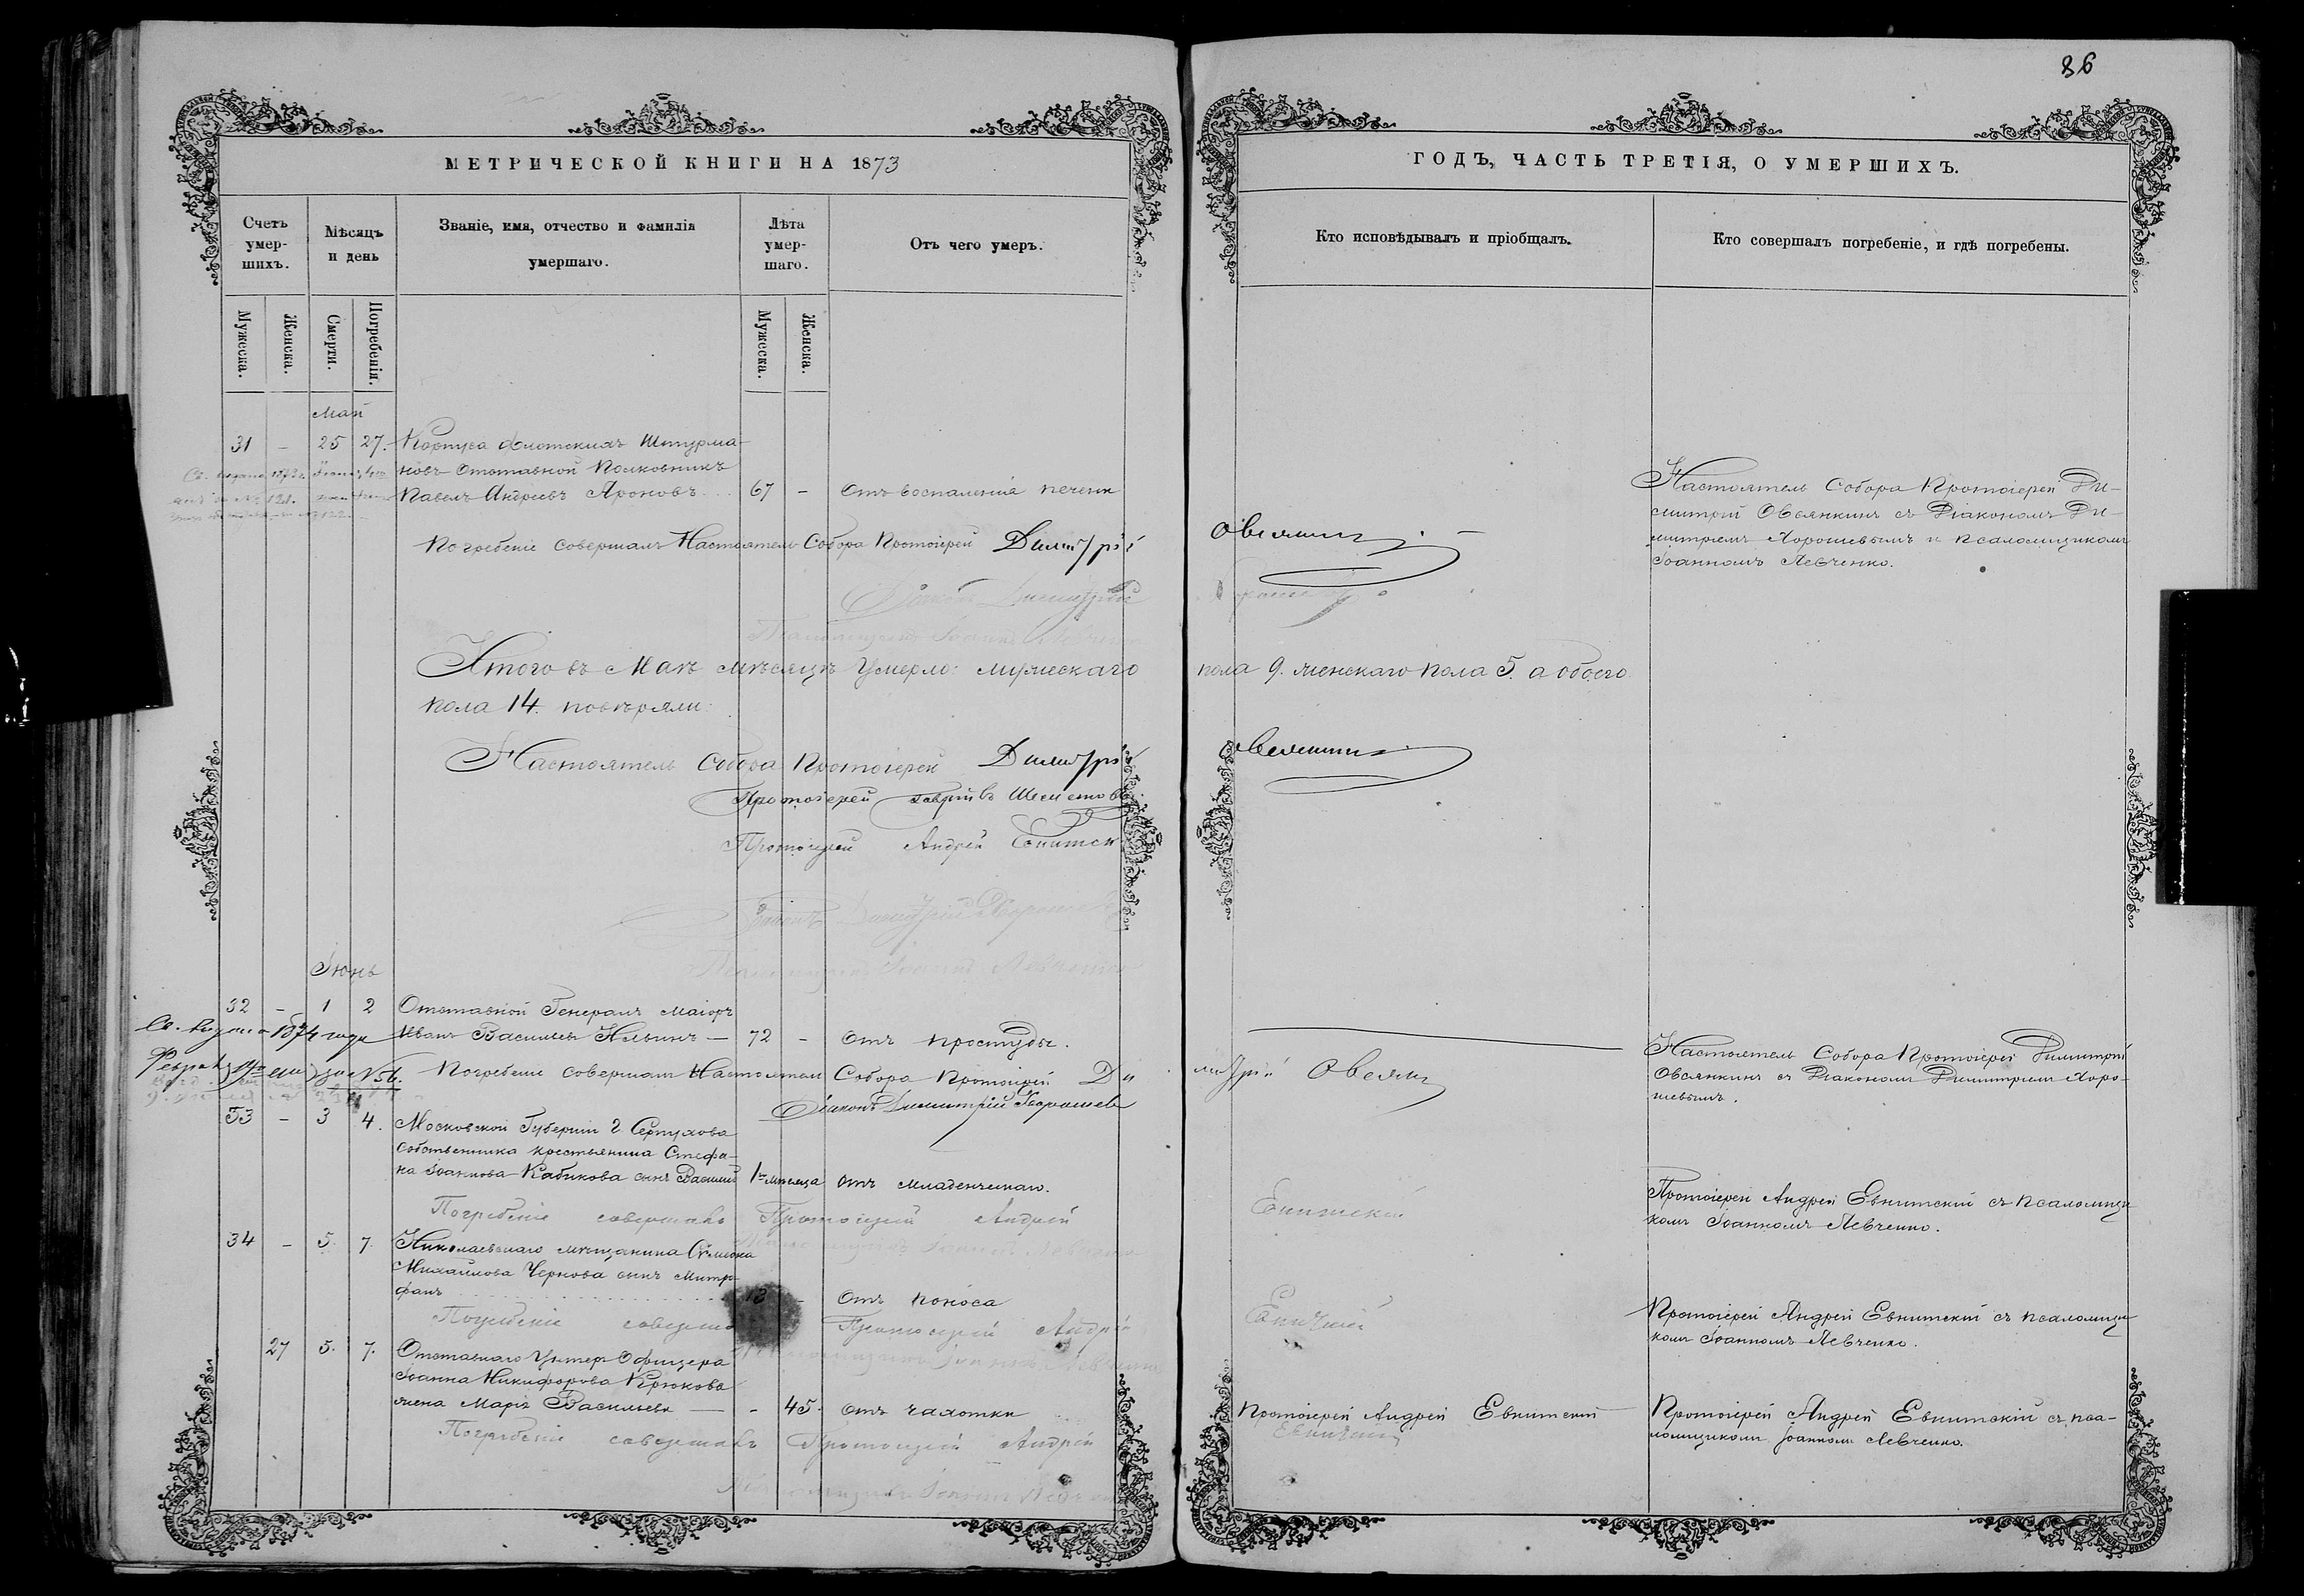 86
МЕТРИЧЕСКОЙ КНИГИ НА 1873
ГОДЪ, ЧАСТЬ ТРЕТІЯ, О УМЕРШИХЪ.
Счетъ умер-шихъ.
Мѣсяцъ и день
Званіе, имя, отчество и фамилія умершаго.
Лѣта умер-шаго.
Отъ чего умеръ.
Кто исповѣдывалъ и пріобщалъ.
Кто совершалъ погребеніе, и гдѣ погребены.
Мужеска.
Женска.
Смерти.
Погребенія.
Мужеска.
Женска.
Май
31 - 25 27. Корпуса флотскихъ Штурма-
новъ Отставной Полковникъ
Павелъ Андреевъ 67 - Отъ воспаленія печени
Настоятель Собора Протоіерей Ди-
митрій Овсянкинъ съ Діакономъ Ди-
митріемъ Хорошевымъ и псаломщикомъ
Іоанномъ Левченко.
Погребеніе совершалъ Настоятель Собора Протоіерей Димитрій Овсянкинъ
Діаконъ Димитрій
Псаломщикъ Іоаннъ Левченко
Итого въ Маѣ мѣсяцѣ умерло: мужескаго пола 9. женскаго пола 5. а обоего
пола 14. повѣряли:
Настоятель Собора Протоіерей Димитрій Овсянкинъ
Протоіерей
Протоіерей Андрей Евнитскій
Діаконъ Димитрій Хорошевъ
Псаломщикъ Іоаннъ Левченко
Іюнь
32 - 1 2 Отставной Генералъ Маіоръ
Иванъ Васильевъ Ильинъ — 72 - Отъ простуды.
Св. выдано 1874 года
Настоятель Собора Протоіерей Димитрій
Овсянкинъ съ Діакономъ Димитріемъ Хоро-
шевымъ.
Погребеніе совершалъ Настоятель Собора Протоіерей Димитрій Овсянкинъ
Діаконъ Димитрій Хорошевъ
33 - 3 4. Московской Губерніи г. Серпухова
собственника крестьянина Стефа-
на Іоаннова Кабикова сынъ Василій 1го мѣсяца Отъ младенческаго.
Протоіерей Андрей Евнитскій съ псаломщи
комъ Іоанномъ Левченко.
Погребеніе совершалъ Протоіерей Андрей Евнитскій
Псаломщикъ Іоаннъ Левченко
34 - 5. 7. Николаевскаго мѣщанина Симеона
Михайлова Чернова сынъ Митро-
фанъ - Отъ поноса
Протоіерей Андрей Евнитскій съ псаломщи
комъ Іоанномъ Левченко.
Погребеніе Протоіерей Андрей Евнитскій
Псаломщикъ Іоаннъ Левченко
27 5. 7. Отставнаго Унтеръ Офицера
Іоанна Никифорова Крюкова
жена Марія Васильева — - 45. Отъ чахотки
Протоіерей Андрей Евнитскій
Протоіерей Андрей Евнитскій съ пса-
ломщикомъ Іоанномъ Левченко.
Погребеніе совершалъ Протоіерей Андрей Евнитскій